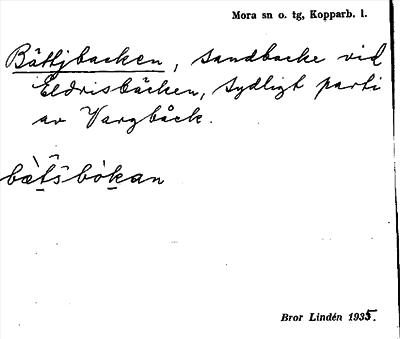 Mora sn o. tg, Kopparb. l.
Båttjbacken, sandbacke vid
Eldrisbäcken, sydligt parti
av Vargbåck.
bœ̀tŝbókan
Bror Lindén 1935.